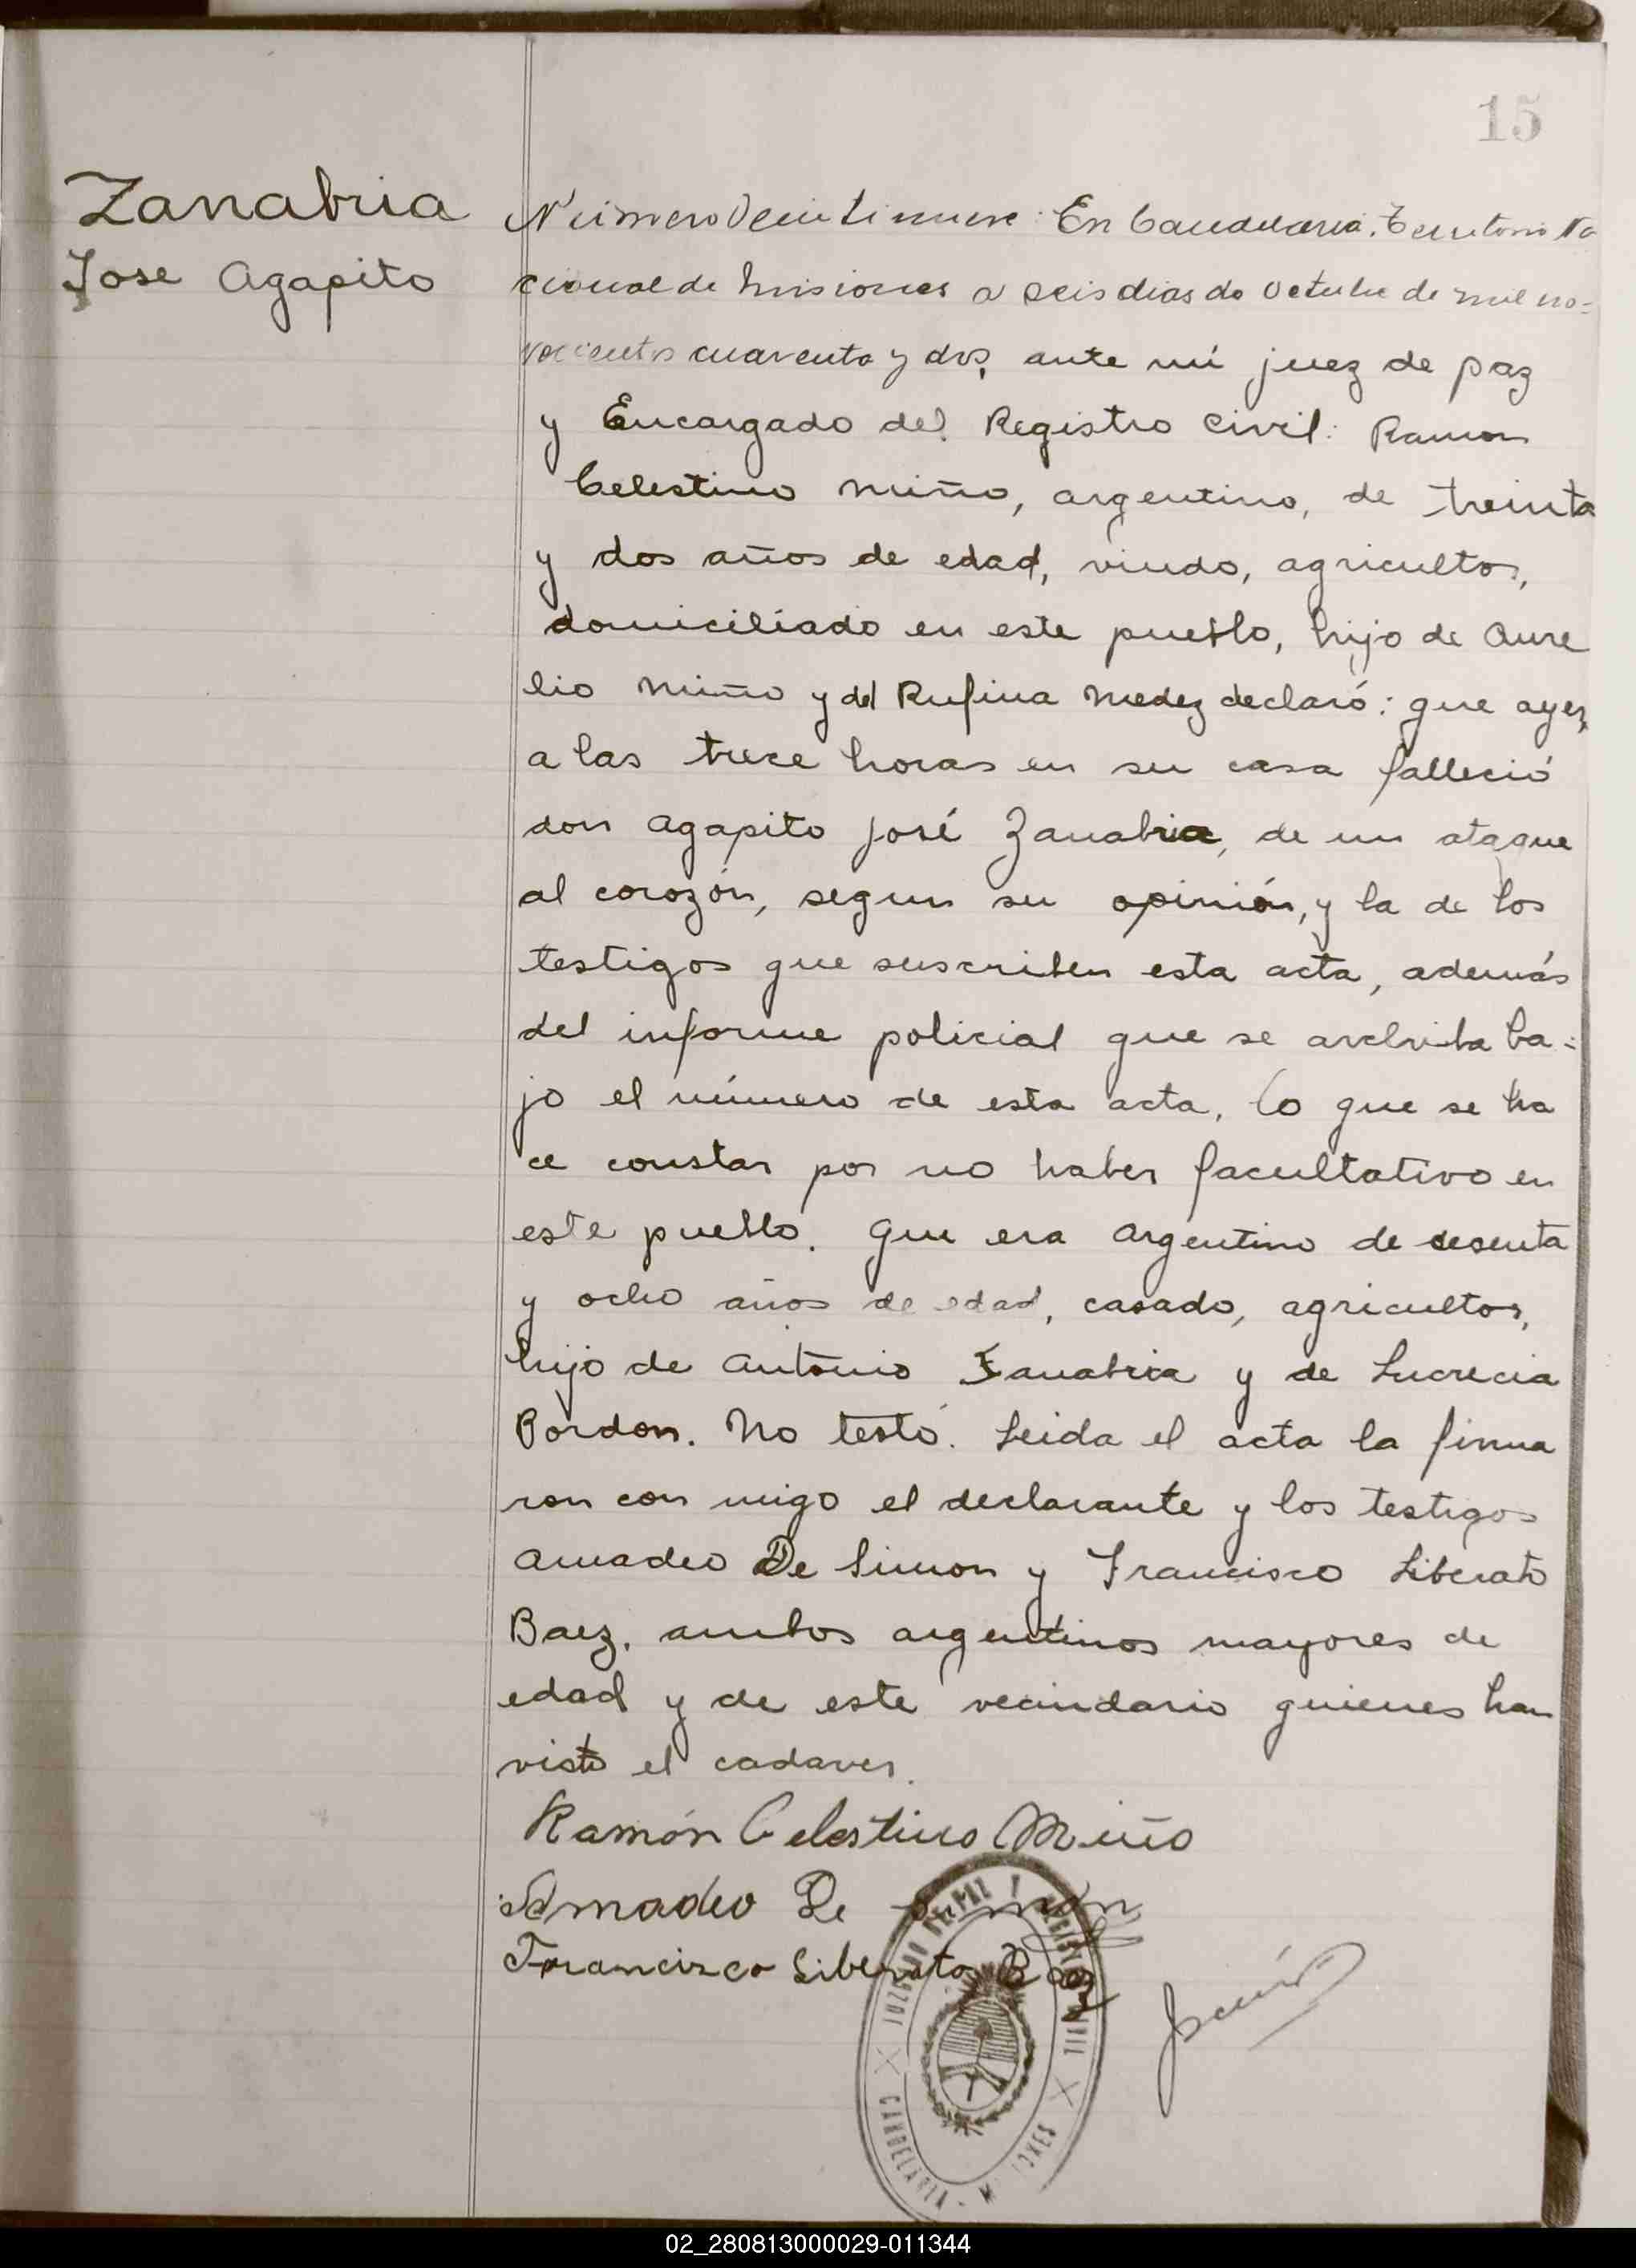 15
Zanabria
Jose Agapito
Número Veintinueve: En Candelaria, Territorio Na
cional de Misiones a seis dias de Octubre de mil no-
vecientos cuarenta y dos, ante mi juez de paz
y Encargado del Registro Civil: Ramon
Celestino Miño, argentino, de treinta
y dos años de edad, viudo, agricultor,
domiciliado en este pueblo, hijo de Aure
lio Miño y de Rufina Medez declaró: que ayer,
a las trece horas en su casa falleció
don Agapito José Zanabria, de un ataque
al corozón, segun su opinión, y la de los
testigos que suscriben esta acta, además
del informe policial que se archiba ba-
jo el número de esta acta, lo que se ha
ce constar por no haber facultativo en
este pueblo. Que era Argentino de sesenta
y ocho años de edad, casado, agricultor,
hijo de Antonio Zanabria y de Lucrecia
Bordon. No testó. Leida el acta la firma
ron con migo el declarante y los testigos
Amadeo De Simon y Francisco Liberato
Baez, ambos argentinos mayores de
edad y de este vecindario quienes han
visto el cadaver.
Ramón Celestino Miño
Amadeo De Simon
Francisco Liberato Baez
JUZGADO DE PAZ Y REGISTRO CIVIL
CANDELARIA - MISIONES
02_280813000029-011344